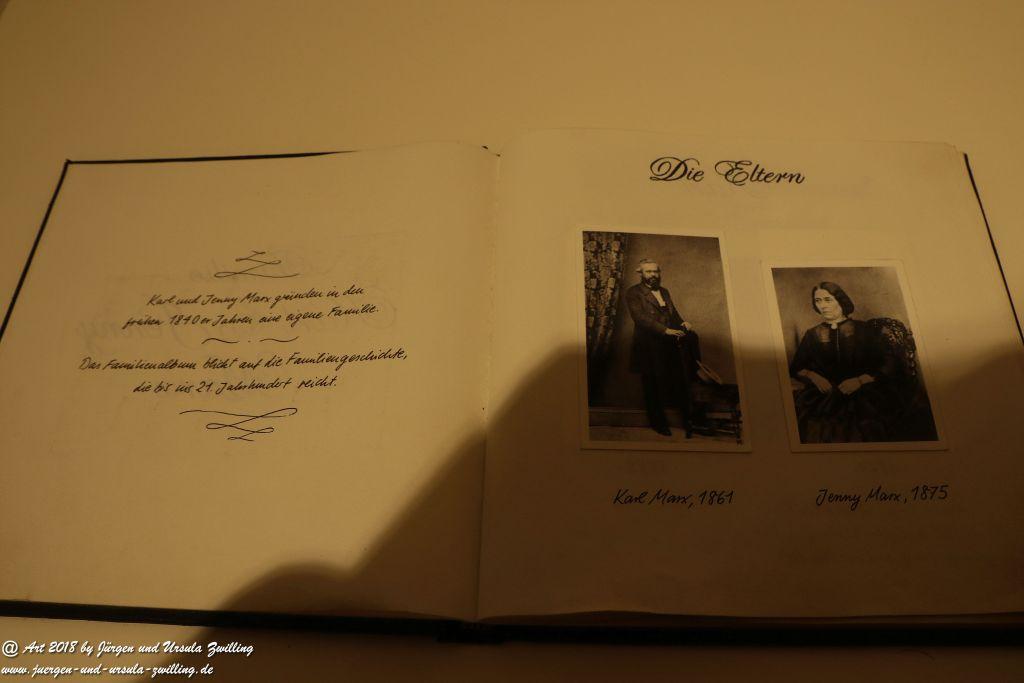 Karl und Jenny Marx gründen in den
frühen 1840er Jahren eine eigene Familie.
Das Familienalbum blickt auf die Familiengeschichte,
die bis ins 21. Jahrhundert reicht.
Die Eltern
Karl Marx, 1861
Jenny Marx, 1875
@ Art 2018 by Jürgen und Ursula Zwilling
www.juergen-und-ursula-zwilling.de